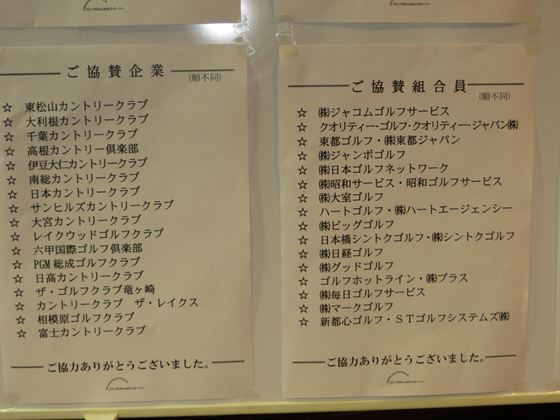 ご協賛企業
(順不同)
☆ 東松山カントリークラブ
☆ 大利根カントリークラブ
☆ 千葉カントリークラブ
☆ 高根カントリー倶楽部
☆ 伊豆大仁カントリークラブ
☆ 南総カントリークラブ
☆ 日本カントリークラブ
☆ サンヒルズカントリークラブ
☆ 大宮カントリークラブ
☆ レイクウッドゴルフクラブ
☆ 六甲国際ゴルフ倶楽部
☆ PGM 総成ゴルフクラブ
☆ 日高カントリークラブ
☆ ザ・ゴルフクラブ竜ヶ崎
☆ カントリークラブ ザ・レイクス
☆ 相模原ゴルフクラブ
☆ 富士カントリークラブ
ご協力ありがとうございました。
ご協賛組合員
(順不同)
☆ ㈱ジャコムゴルフサービス
☆ クオリティー・ゴルフ・クオリティー・ジャパン㈱
☆ 東都ゴルフ・㈱東都ジャパン
☆ ㈱ジャンボゴルフ
☆ ㈱日本ゴルフネットワーク
☆ ㈱昭和サービス・昭和ゴルフサービス
☆ ㈱大室ゴルフ
☆ ハートゴルフ・㈱ハートエージェンシー
☆ ㈱ビッグゴルフ
☆ 日本橋シントクゴルフ・㈱シントクゴルフ
☆ ㈱日経ゴルフ
☆ ㈱グッドゴルフ
☆ ゴルフホットライン・㈱プラス
☆ ㈱毎日ゴルフサービス
☆ ㈱マークゴルフ
☆ 新都心ゴルフ・STゴルフシステムズ㈱
ご協力ありがとうございました。